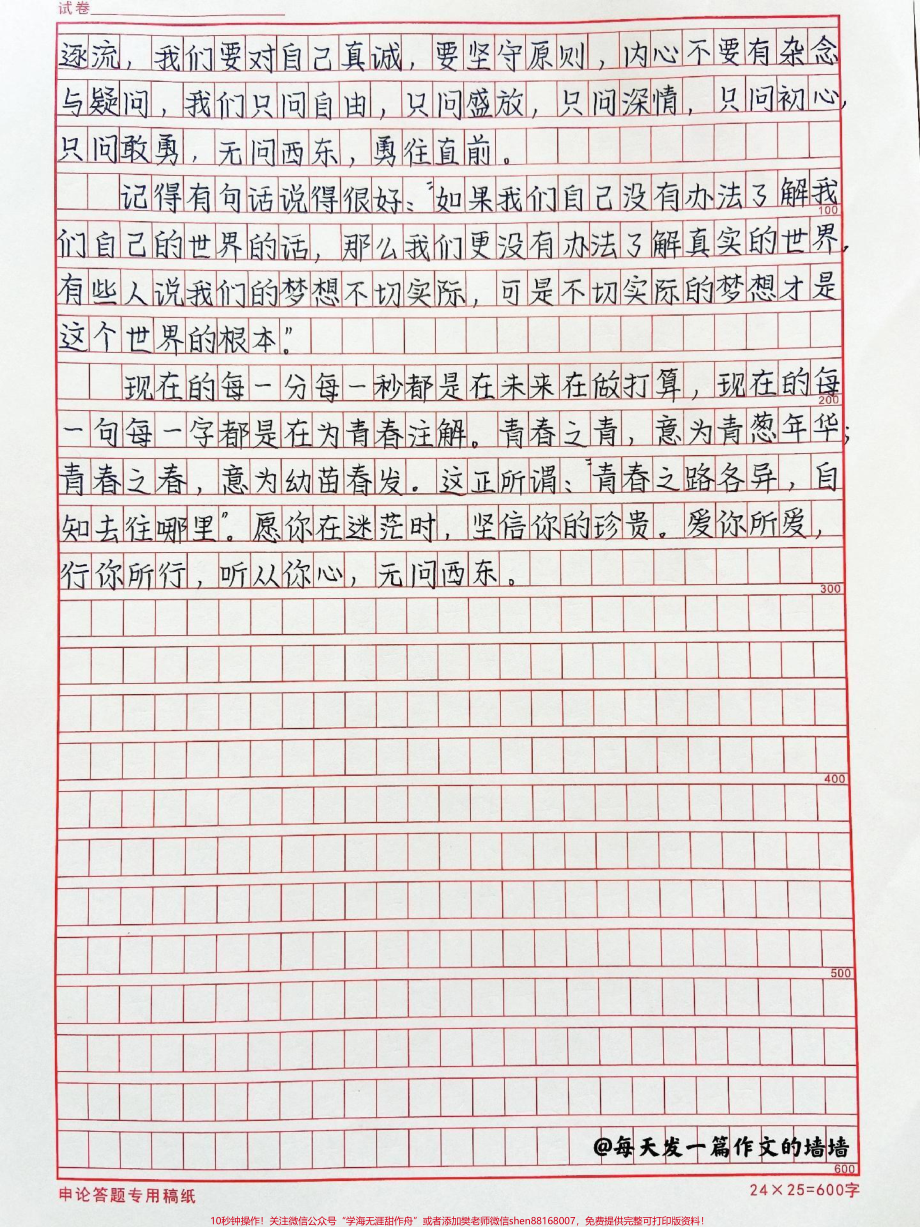 试卷
逐流，我们要对自己真诚，要坚守原则，内心不要有杂念
与疑问，我们只问自由，只问盛放，只问深情，只问初心，
只问敢勇，无问西东，勇往直前。
记得有句话说得很好：“如果我们自己没有办法了解我
100
们自己的世界的话，那么我们更没有办法了解真实的世界，
有些人说我们的梦想不切实际，可是不切实际的梦想才是
这个世界的根本”。
现在的每一分每一秒都是在未来在做打算，现在的每
200
一句每一字都是在为青春注解。青春之青，意为青葱年华；
青春之春，意为幼苗春发。这正所谓：“青春之路各异，自
知去往哪里”。愿你在迷茫时，坚信你的珍贵。爱你所爱，
行你所行，听从你心，无问西东。
300
400
500
@每天发一篇作文的墙墙
600
申论答题专用稿纸
24×25=600字
10秒钟操作！关注微信公众号“学海无涯甜作舟”或者添加樊老师微信shen88168007，免费提供完整可打印版资料！